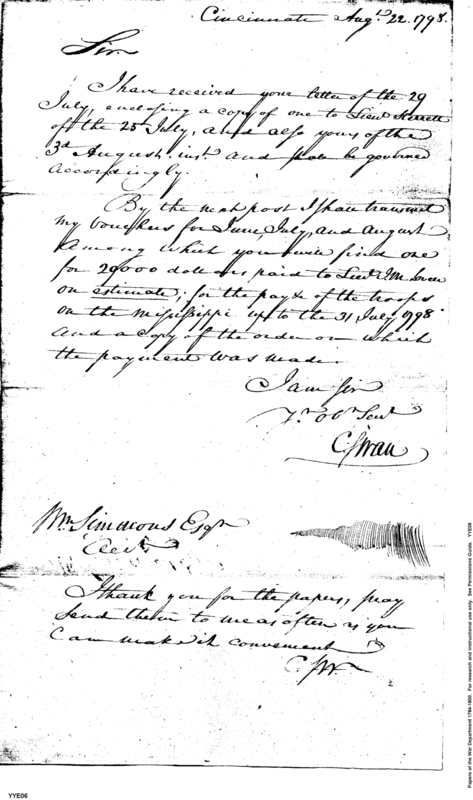 Cincinnati Augt. 22. 1798.
Sir
I have received your letter of the 29
July, enclosing a copy of one to Lieut
off the 25 July, and also yours of the
3d August. inst. and shall be governed
accordingly.
By the next post I shall transmit
my vouchers for June, July, and August
Among which you will find one
for 29000 dollars paid to Lieut
on estimate; for the pay &c of the troops
on the Mississippi up to the 31 July 1798
and a copy of the order on which
the payment was made.
I am Sir
Yr. Obt Servt
C Swan
Wm Simmons Esqr
Acct.
I thank you for the papers, pray
send them to me as often as you
can make it convenient
C Sw.
YYE06
Papers of the War Department 1784-1800. For research and instructional use only. See Permissions Guide. YYE06